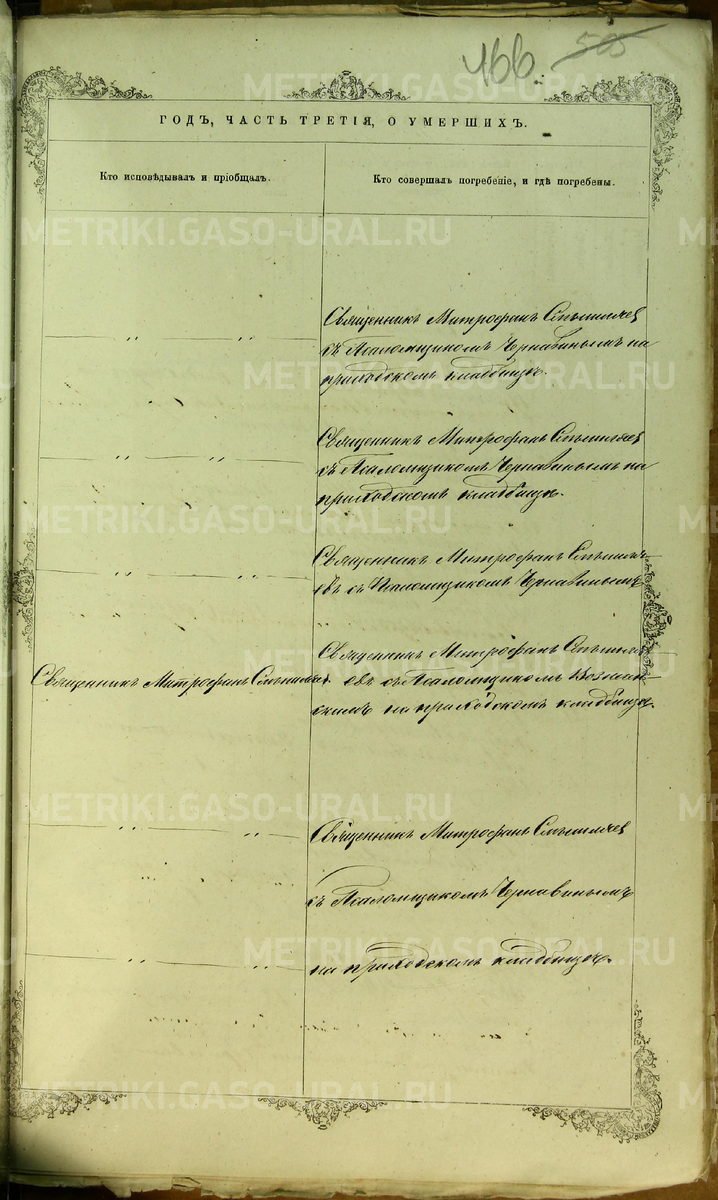 466. 505
ГОДЪ, ЧАСТЬ ТРЕТІЯ, О УМЕРШИХЪ.
Кто исповѣдывалъ и пріобщалъ.
Кто совершалъ погребеніе, и гдѣ погребены.
Священникъ Митрофанъ
съ Псаломщикомъ Чернавинымъ на
приходскомъ кладбищѣ.
Священникъ Митрофанъ
съ Псаломщикомъ Чернавинымъ на
приходскомъ кладбищѣ.
Священникъ Митрофанъ
евъ съ Псаломщикомъ Чернавинымъ
Священникъ Митрофанъ
Священникъ Митрофанъ
евъ съ Псаломщикомъ
скимъ на приходскомъ кладбищѣ.
Священникъ Митрофанъ
съ Псаломщикомъ Чернавинымъ
на приходскомъ кладбищѣ.
METRIKI.GASO-URAL.RU